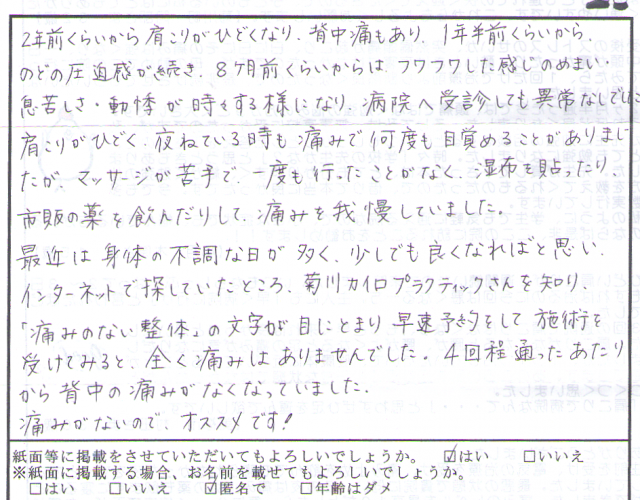 2年前くらいから肩こりがひどくなり、背中痛もあり、1年半前くらいから、
のどの圧迫感が続き、8ヶ月前くらいからは、フワフワした感じのめまい・
息苦しさ・動悸が時々する様になり、病院へ受診しても異常なしでした
肩こりがひどく、夜ねている時も痛みで何度も目覚めることがありまし
たが、マッサージが苦手で、一度も行ったことがなく、湿布を貼ったり、
市販の薬を飲んだりして、痛みを我慢していました。
最近は身体の不調な日が多く、少しでも良くなればと思い、
インターネットで探していたところ、菊川カイロプラクティックさんを知り、
「痛みのない整体」の文字が目にとまり早速予約をして施術を
受けてみると、全く痛みはありませんでした。4回程通ったあたり
から背中の痛みがなくなっていました。
痛みがないので、オススメです!
紙面等に掲載をさせていただいてもよろしいでしょうか。 ☑はい □いいえ
※紙面に掲載する場合、お名前を載せてもよろしいでしょうか。
□はい □いいえ ☑匿名で □年齢はダメ